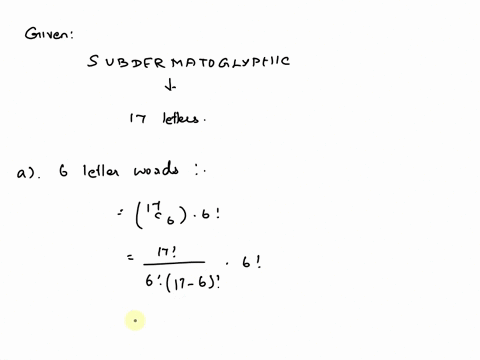 Given:
SUBDERMATOGLYPHIC
↓
17 letters.
a). 6 letter words :.
= (17c6) · 6!
= 17! / 6!(17-6)! · 6!